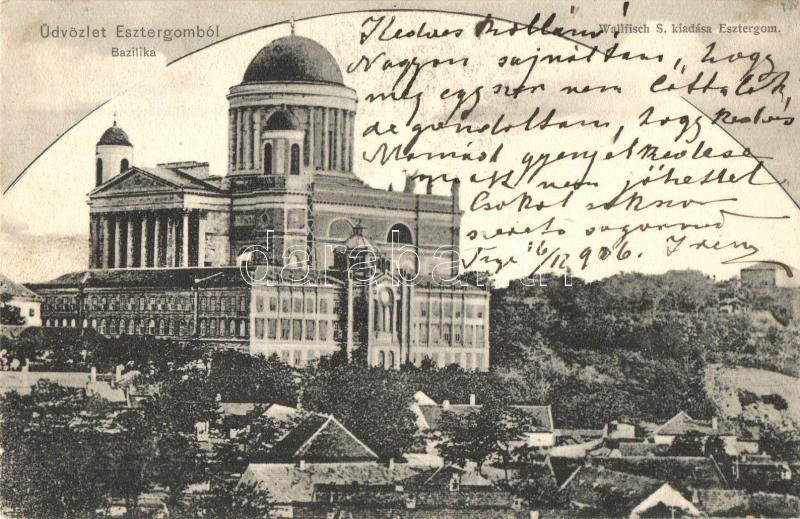 Üdvözlet Esztergomból
Bazilika
Wallfisch S. kiadása Esztergom.
Kedves
Nagyon sajnáltam, hogy
még egyszer nem láttalak
de gondoltam, hogy kedves
Mamád gyengélkedése
miatt nem jöhettel
Csókol
szerető sógornőd
6/12 906. Irén
darabanth